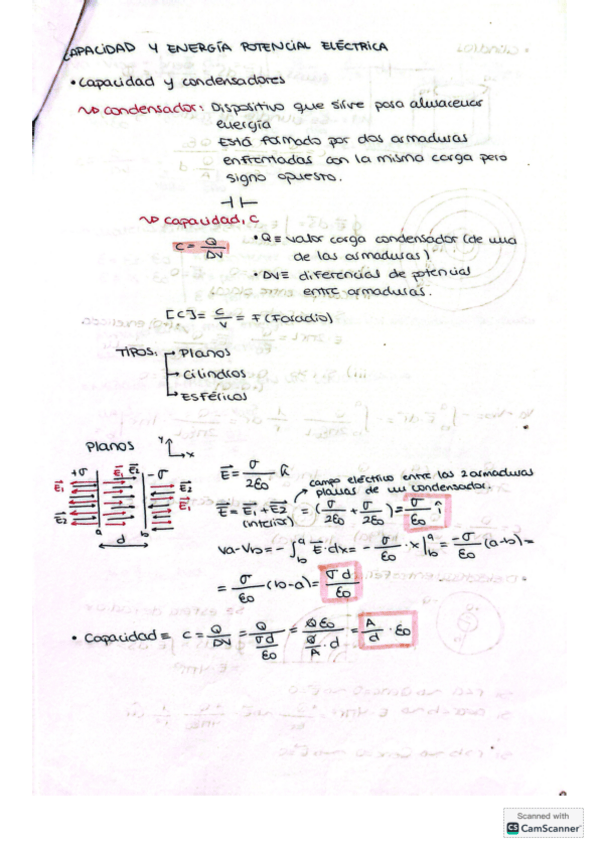 CAPACIDAD Y ENERGÍA POTENCIAL ELÉCTRICA
• capacidad y condensadores
↝ condensador: Dispositivo que sirve para almacenar
energía
Está formado por dos armaduras
enfrentadas con la misma carga pero
signo opuesto.
⊣⊢
↝ capacidad, C
C = Q/ΔV
• Q ≡ valor carga condensador (de una
de las armaduras)
• ΔV ≡ diferencias de potencial
entre armaduras.
[C] = C/V = F (Faradio)
TIPOS: → Planos
→ Cilindros
→ Esféricos
Planos
y
x
+σ E₁ E₂ -σ
E₁ E₂
E₂ E₁
a b
d
E = σ/2ε₀ î
campo eléctrico entre las 2 armaduras
planas de un condensador.
E = E₁ + E₂ = (σ/2ε₀ + σ/2ε₀) = σ/ε₀ î
(interior)
Va-Vb = - ∫ₐᵇ E·dx = - σ/ε₀ · x |ₐᵇ = -σ/ε₀ (a-b) =
= σ/ε₀ (b-a) = σd/ε₀
• Capacidad ≡ C = Q/ΔV = Q/(σd/ε₀) = Qε₀/(Q/A · d) = A/d · ε₀
Scanned with
CS CamScanner